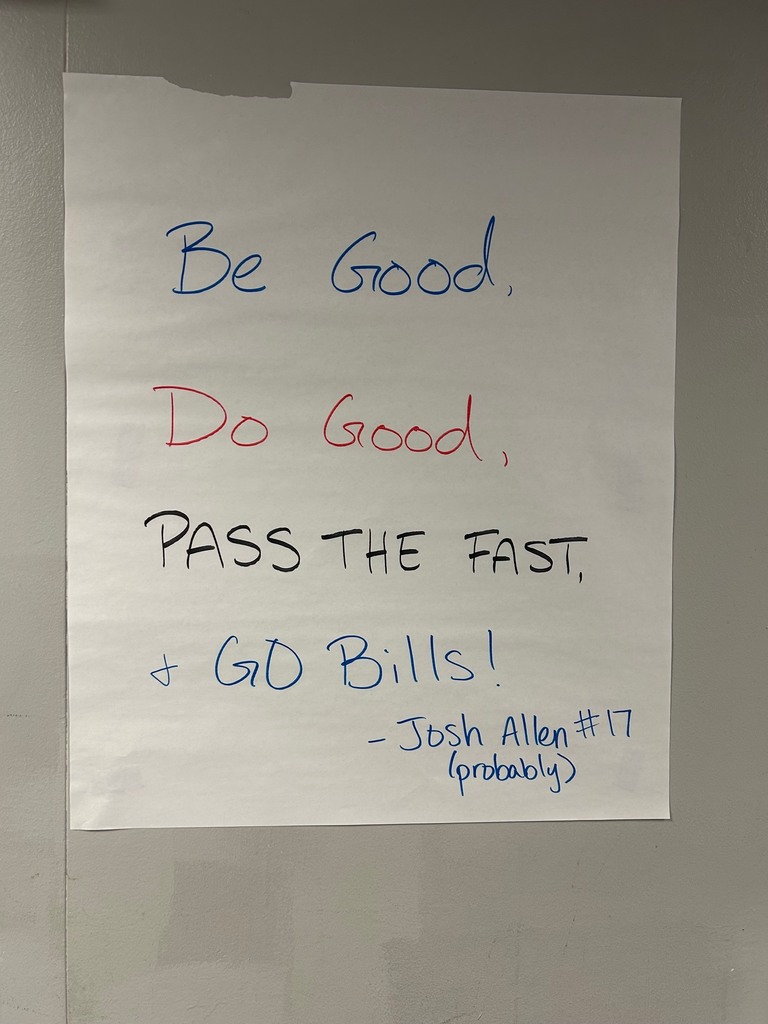 Be Good,
Do Good,
PASS THE FAST,
+ GO Bills!
- Josh Allen #17
(probably)